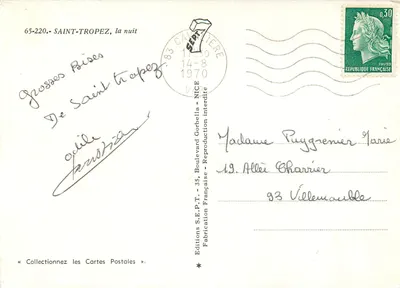 65-220.- SAINT-TROPEZ, la nuit
Grosses Bises
De Saint tropez
odile
83
14-8
1970
0,30
REPUBLIQUE FRANÇAISE
Editions S.E.P.T. - 35, Boulevard Gorbella - NICE
Fabrication Française - Reproduction interdite
Madame Puygrenier Marie
19. Allée Charrier
93 Villemomble
« Collectionnez les Cartes Postales ».